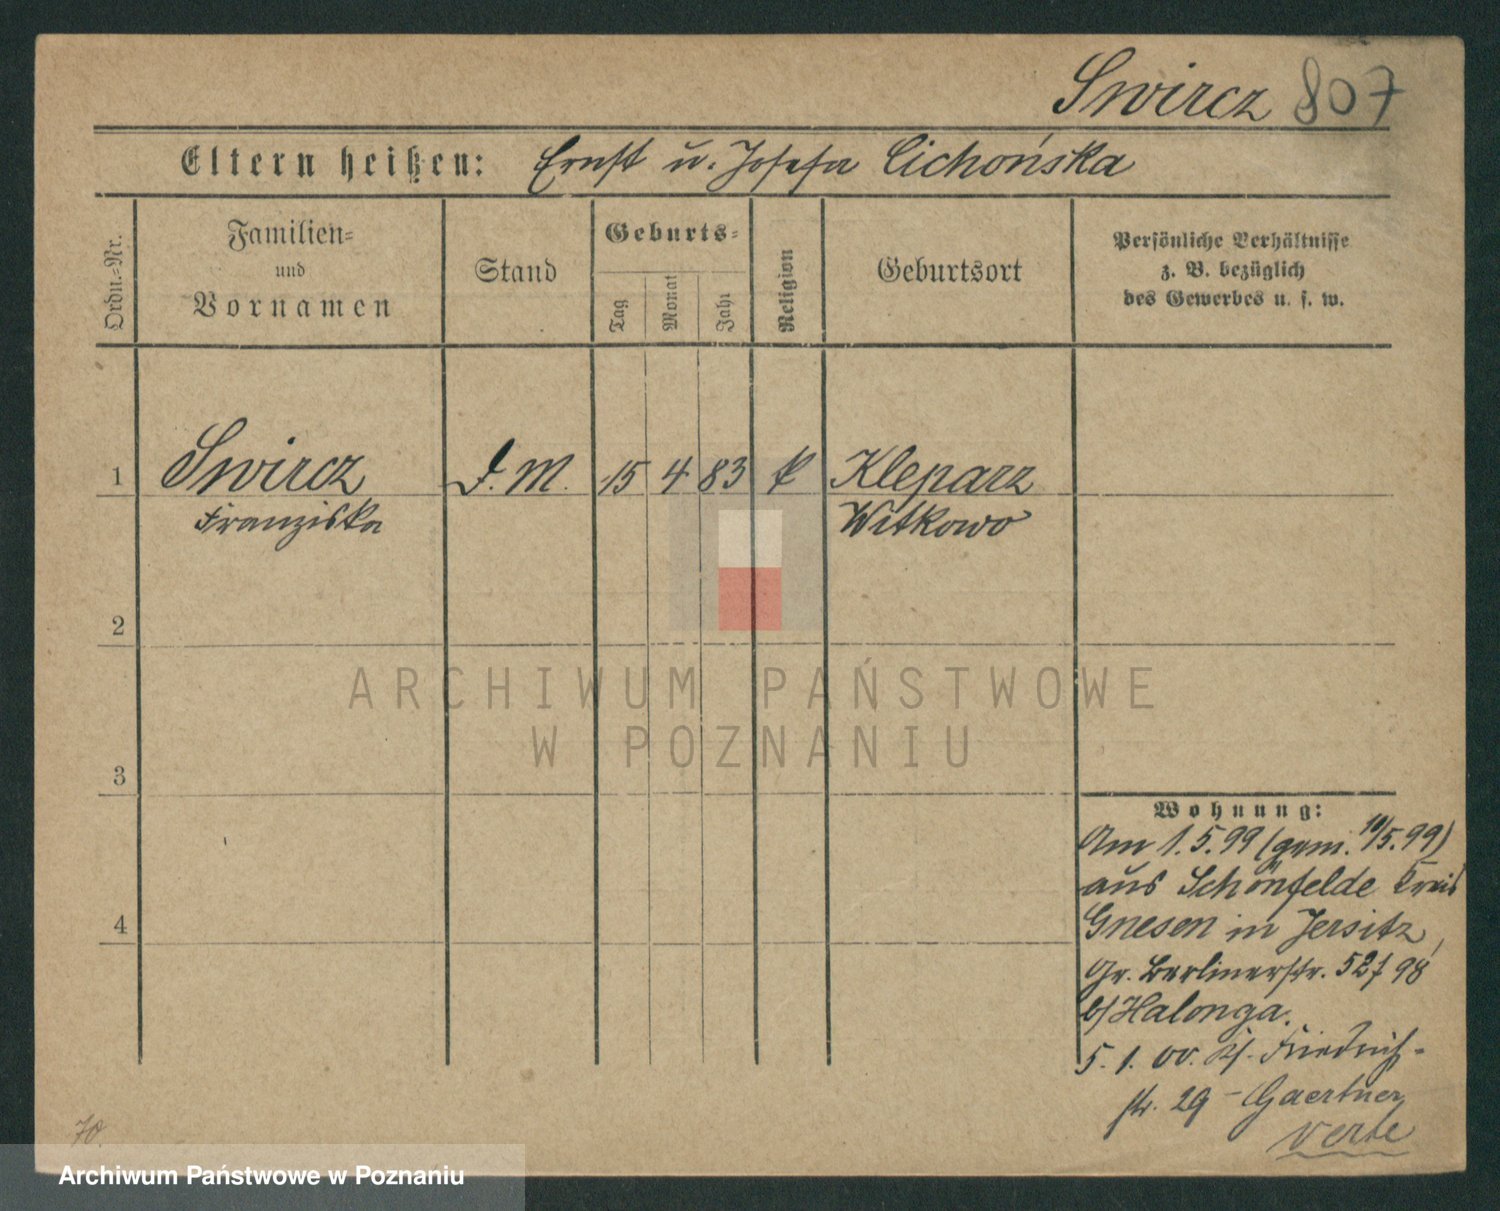 Swircz 807
Eltern heißen: Ernst u. Josefa Cichońska
Ordn.=Nr.
Familien=
und
Vornamen
Stand
Geburts=
Tag
Monat
Jahr
Religion
Geburtsort
Persönliche Verhältnisse
z. B. bezüglich
des Gewerbes u. s. w.
1 Swircz D. M. 15 4 83 k Kleparz
Franziska Witkowo
2
3
4
Wohnung:
Am 1.5.99 (gem. 10/5.99)
aus Schönfelde Kreis
Gnesen in Jersitz,
Gr. Berlinerstr. 52/98
b/Halonga.
5. 1. 00. Friedrich-
str. 29 - Gaertner
verte
70.
ARCHIWUM PAŃSTWOWE
W POZNANIU
Archiwum Państwowe w Poznaniu